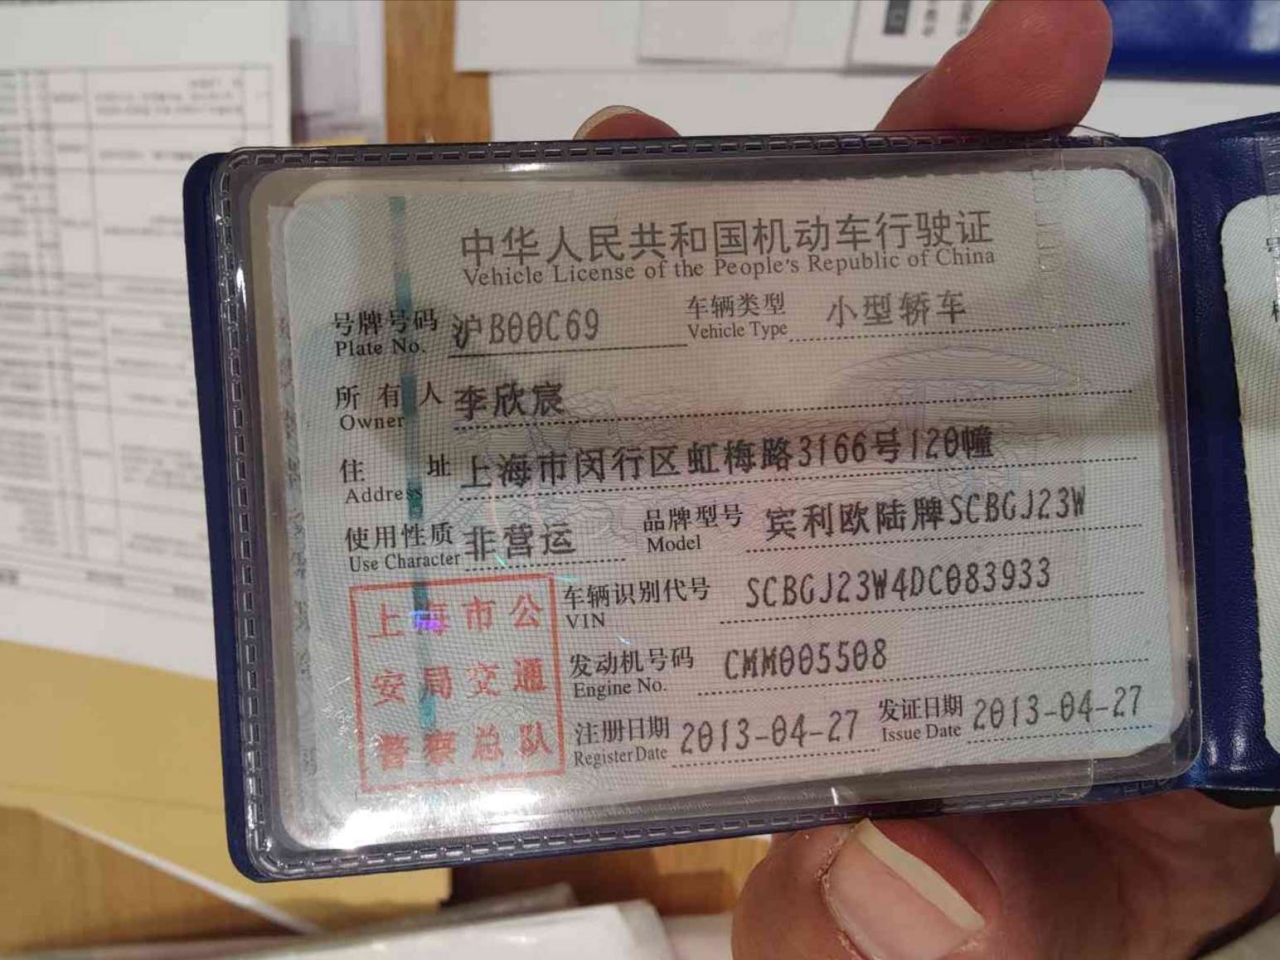 中华人民共和国机动车行驶证
Vehicle License of the People's Republic of China
号牌号码 沪B00C69 车辆类型 小型轿车
Plate No. Vehicle Type
所有人 李欣宸
Owner
住址 上海市闵行区虹梅路3166号120幢
Address
使用性质 非营运 品牌型号 宾利欧陆牌SCBGJ23W
Use Character Model
车辆识别代号 SCBGJ23W4DC083933
VIN
发动机号码 CMM005508
Engine No.
注册日期 2013-04-27 发证日期 2013-04-27
Register Date Issue Date
上海市公
安局交通
警察总队